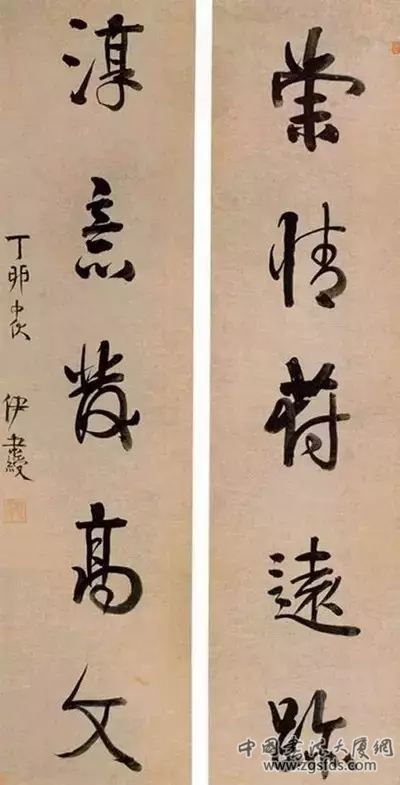 崇情符遠跡
淳意發高文
丁卯中伏 伊秉綬
中國書法大廈網
www.zgsfds.com